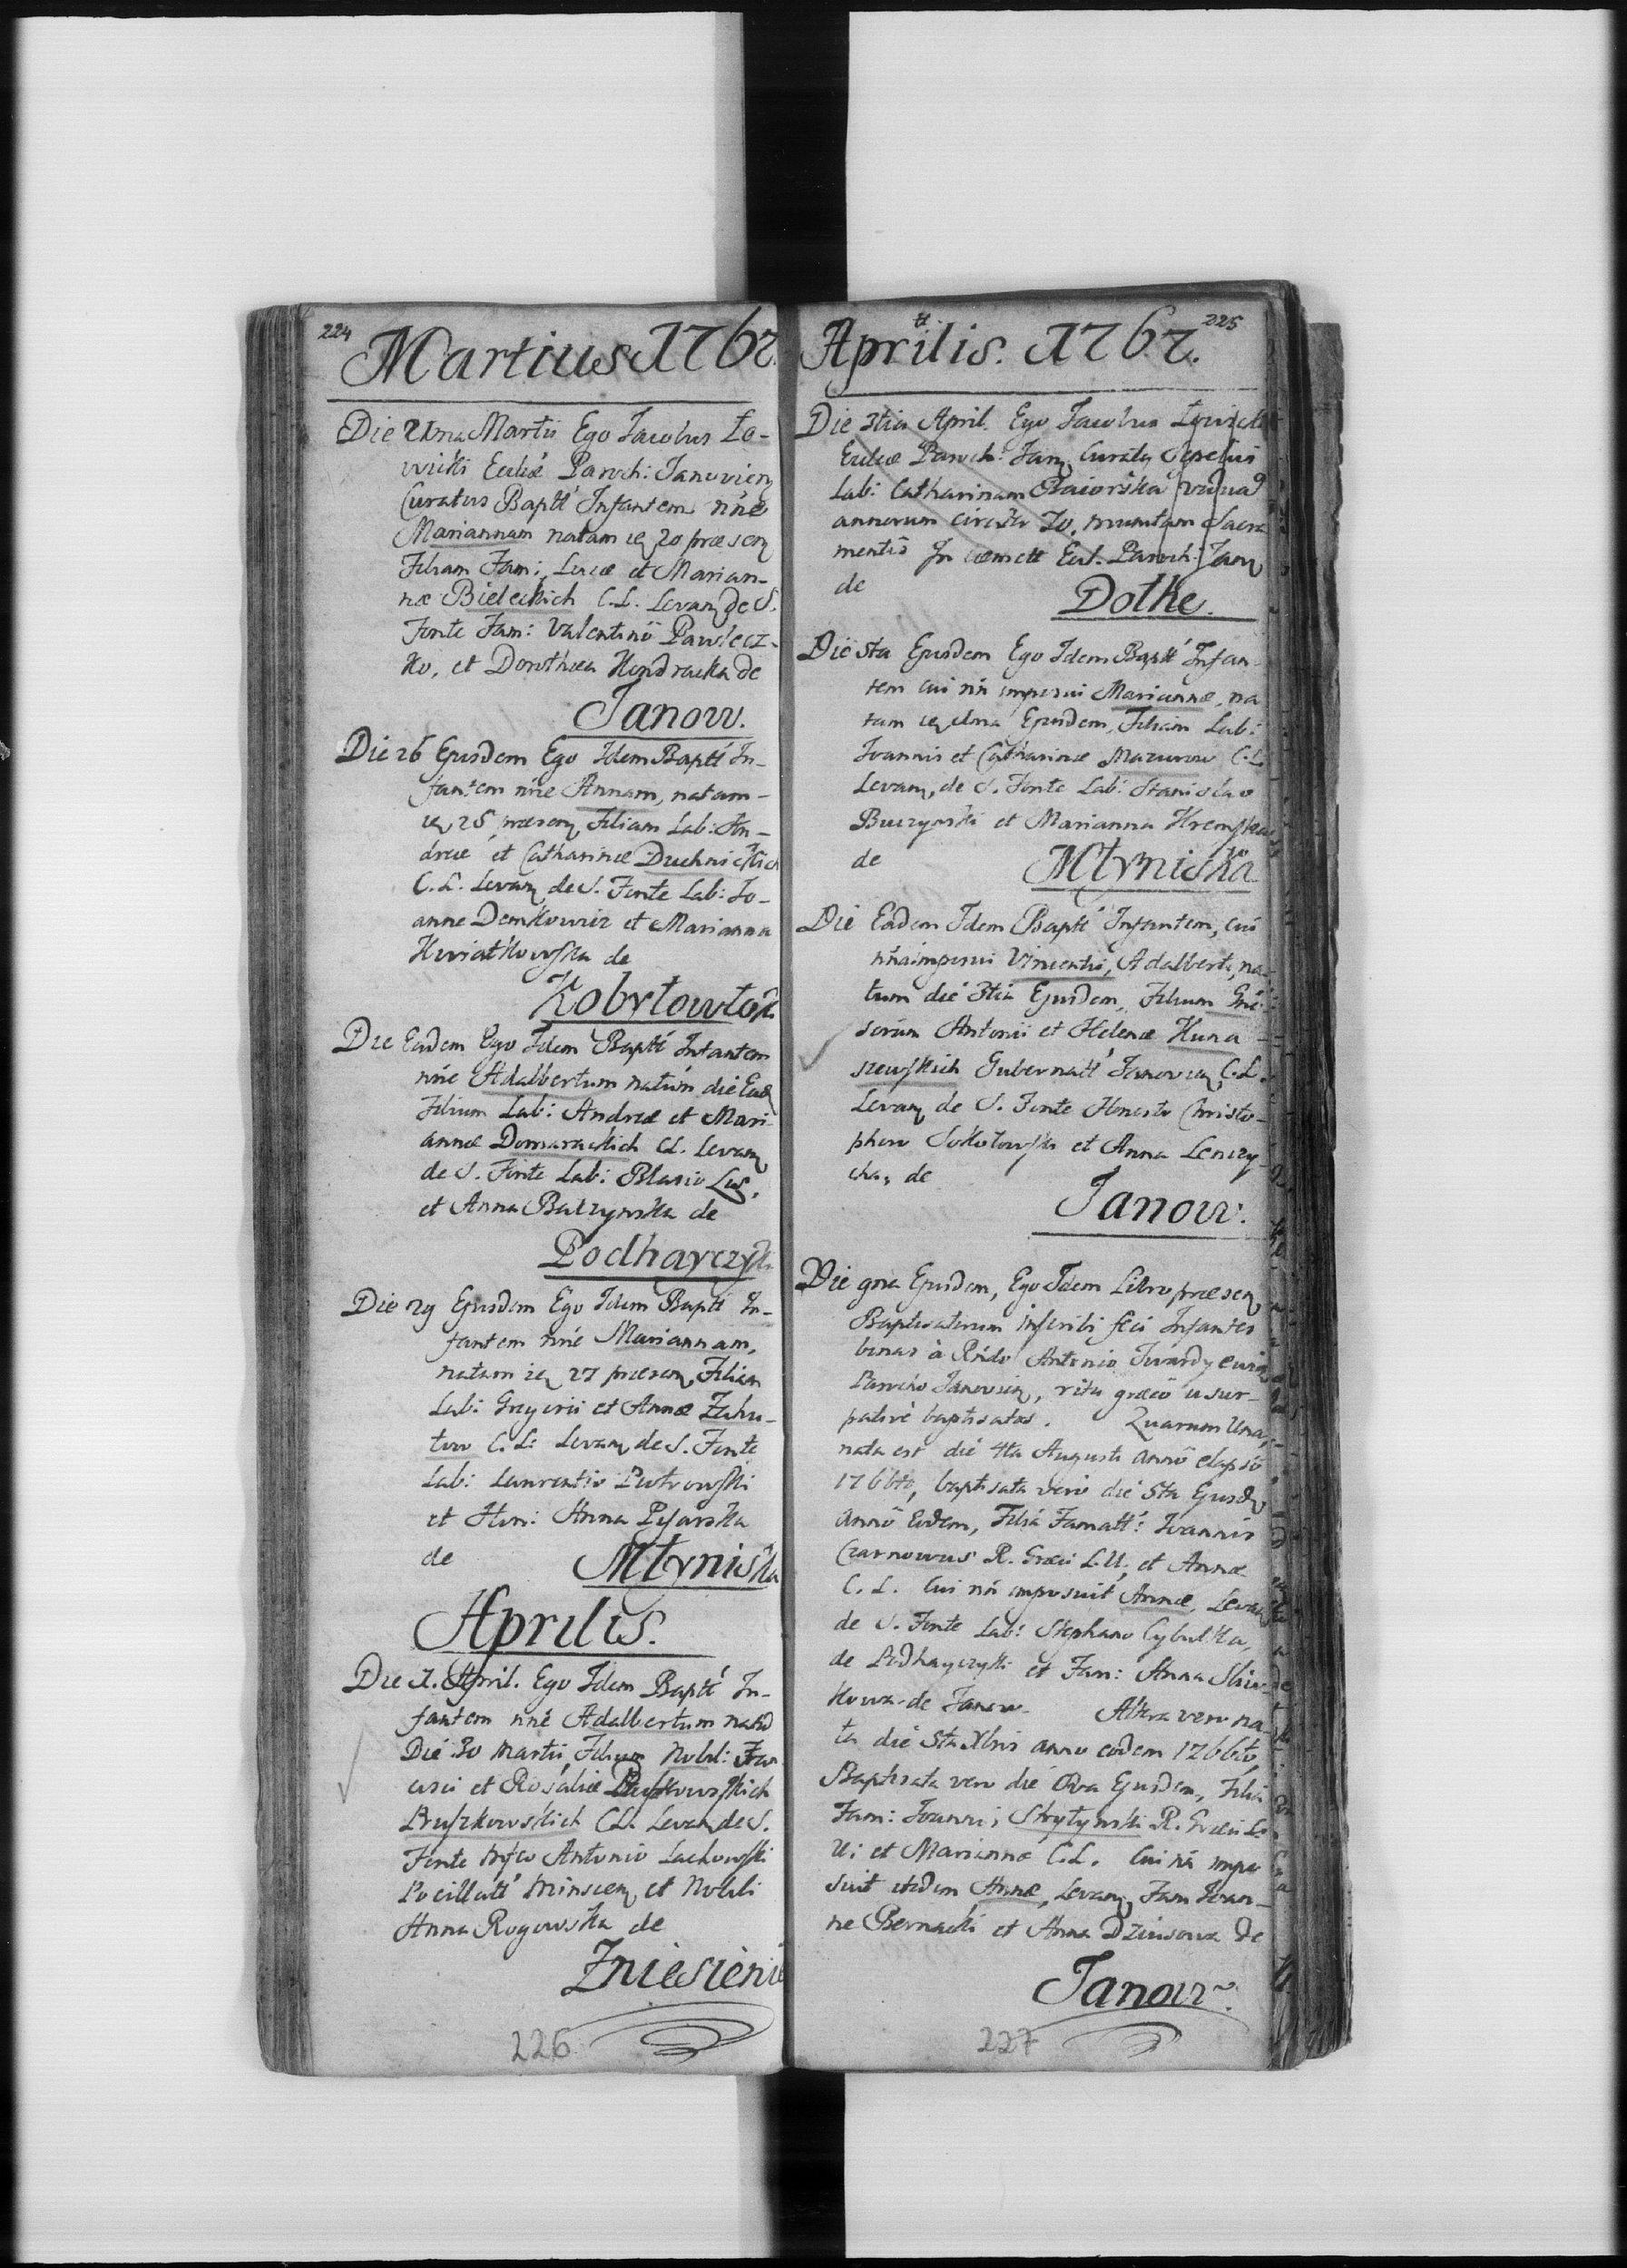 224
Martius 1767.
Die 21ma Martii Ego Jacobus Ło-
wicki Eccliæ Paroch: Janovien
Curatus Baptt Infantem nñe
Mariannam natam 20 præsen
Filiam Fam: Lucæ et Marian-
næ Bieleckich C.L. Levan de S.
Fonte Fam: Valentinō Pawlecz-
ko, et Dorothea Kondracka de
Janow.
Die 26 Ejusdem Ego Idem Baptt In-
fantem nñe Annam, natam-
25 præsen, Filiam Lab: An-
dreæ et Catharinæ Duchnickich
C.L. Levan de S. Fonte Lab: Jo-
anne Demkowicz et Marianna
Kwiatkowska de
Die Eadem Ego Idem Baptt Infantem
nñe Adalbertum natum die Ead
Filium Lab: Andreæ et Mari-
annæ Domarackich CL. Levan
de S. Fonte Lab: Blasio Lus,
et Anna Buczynska de
Podhayczyk
Die 29 Ejusdem Ego Idem Baptt In-
fantem nñe Mariannam,
natam 27 præsen, Filiam
Lab: Gregorii et Annæ Zahu-
tow C.L. Levan de S. Fonte
Lab: Laurentio Piotrowski
et Hon: Anna Pisarska
de Młyniska
Aprilis.
Die 1. April. Ego Idem Baptt In-
fantem nñe Adalbertum natū
Die 30 Martii, Filium Nobil: Fran
cisci et Rosaliæ
Pruszkowskich CL. Levan de S.
Fonte Antonio Lachowski
et Nobili
Anna Rogowska de
Zniesienie
226
225
Aprilis. 1767.
Die 3tia April. Ego Jacobus Łowicki
Eccliæ Paroch: Jan, Curaty Sepelivi
Lab: Catharinam Baiorska vidua
annorum circiter 70, munitam Sacra
mentis In cæmett Eccl. Paroch: Jan
de Dolke.
Die 5ta Ejusdem Ego Idem Baptt Infan-
tem cui nñ imposui Mariannæ, na
tam Ejusdem, Filiam Lab:
Joannis et Catharinæ Mazurow C.L.
Levan, de S. Fonte Lab: Stanislao
Buczynski et Marianna
de Młyniska
Die Eadem Idem Baptt Infantem, cui
nña imposui Vincentii, Adalberti, na-
tum die 3tia Ejusdem, Filium Gñe-
sorum Antonii et Helenæ Kuna-
szewskich Gubernatt Janovien, C.L.
Levan de S. Fonte Honesto Christo-
phoro Sokołowski et Anna Lenczy-
cka, de
Janow.
Die 9na Ejusdem, Ego Idem Libro præsen
Baptisatorum inscribi feci Infantes
binas à Rñdo Antonio
Parocho Janovien, ritu græco usur-
pative baptisatas. Quarum Una,
nata est die 4ta Augusti annō elapsō
1766tō, baptisata verō die 5ta Ejusd
annō Eodem, Filia Famatt: Joannis
Czarnowus R. Græci L.U. et Annæ
C.L. Cui nñ imposuit Annæ, Levan
de S. Fonte Lab: Stephano Cybulka,
de Podhayczyki et Fam: Anna Sliw-
kowa de Janow. Altera vero na-
ta die 5ta Xbris anno eodem 1766to,
Baptisata vero die 8va Ejusdem, Filia
Fam: Joannis R. Græci L.
U: et Mariannæ C.L. Cui nñ impo
suit itidem Annæ, Levan, Fam Joan-
ne Bernacki et Anna Dziusowa de
Janow.
227